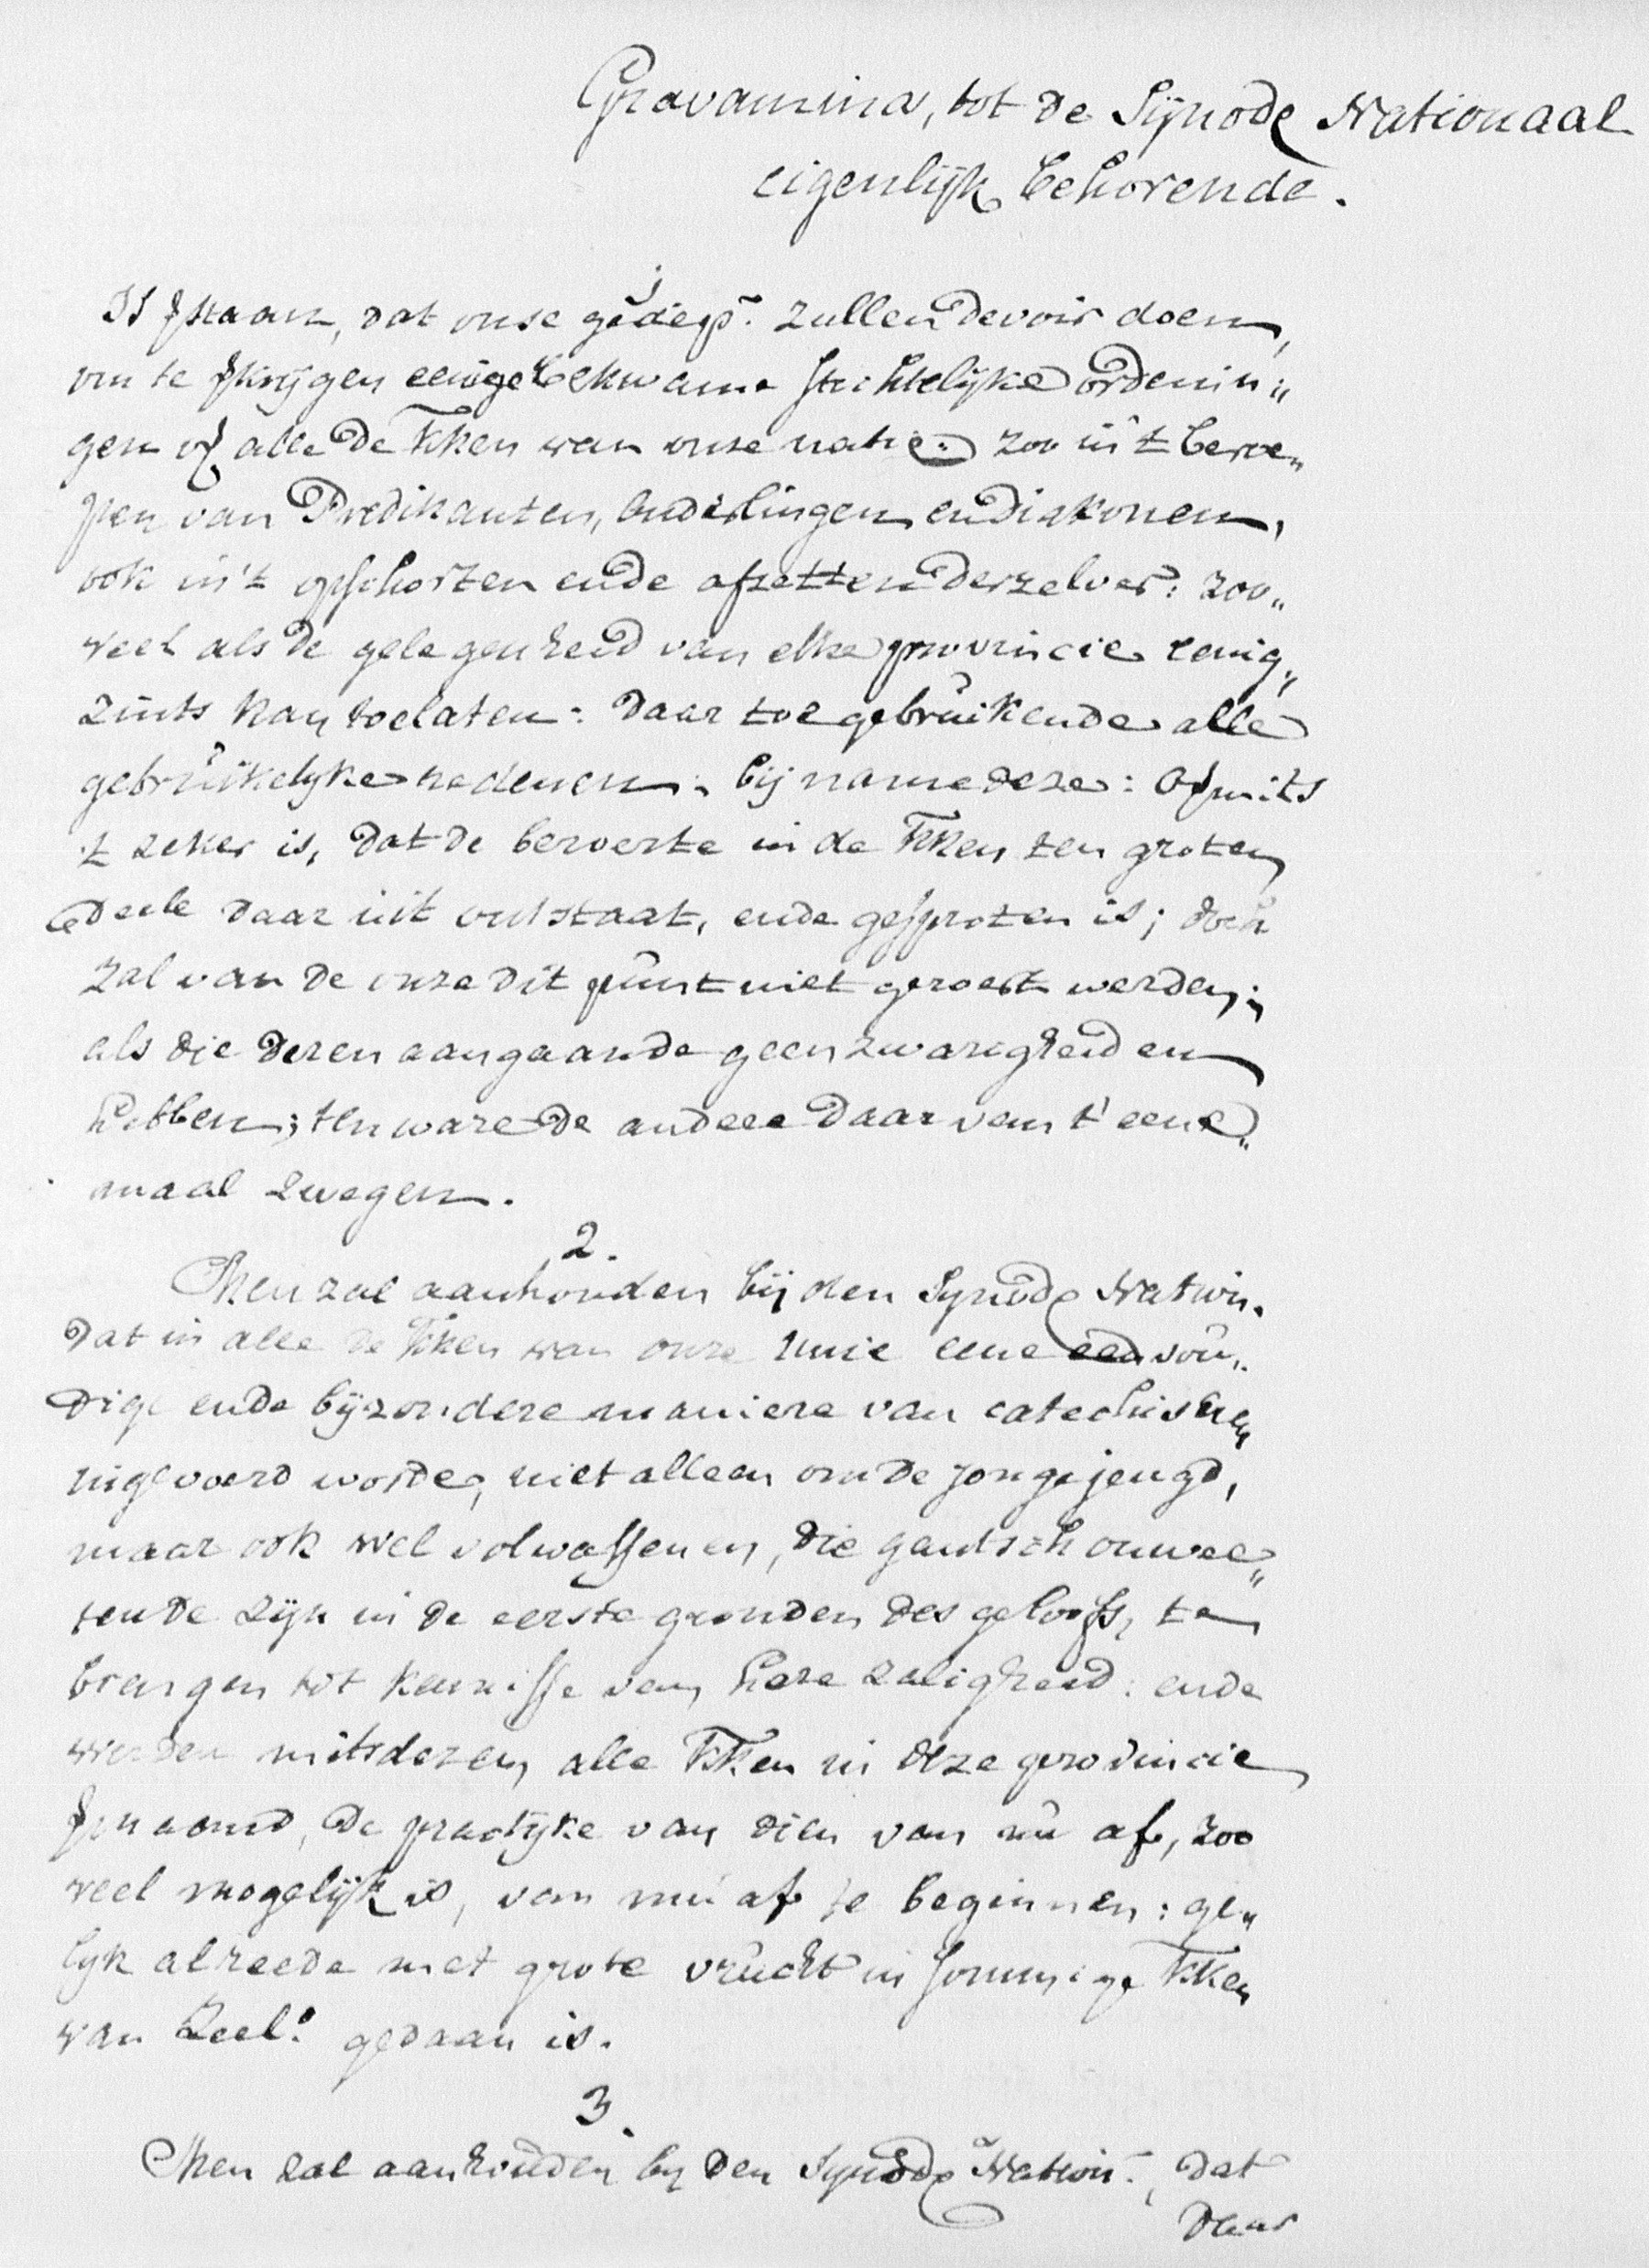 Gravamina, tot de Sijnode Nationaal
eigenlijk behorende.
Is ſtaan, dat onse gedep. zullen devoir doen,
om te krijgen eenige bekwame stichtelijke ordenin„
gen of alle de kken van onse natie: zoo in 't beroe„
pen van Predikanten, Ouderlingen, en Diakonen,
ook in 't opschorten ende afzetten derzelver: zoo„
veel als de gelegenheid van elke provincie eenig„
zints kan toelaten: daar toe gebruikende alle
gebruikelyke redenen: bij name deze: Opmits
't zeker is, dat de beroerte in de kken ten groten
deele daar uit ontstaat, ende gesproten is; doch
zal van de onze dit punt niet geroert werden;
als die dezen aangaande geen zwarigheden
hebben; ten ware de andere daar van t' eene„
maal zwegen.
2.
Men zal aanhouden bij den Synode Nation.
dat in alle de kken van onze Unie eene eenvou„
dige ende bijzondere maniere van catechiseren
ingevoerd worde, niet alleen om de jonge jeugd,
maar ook wel volwassenen, die gantsch onwee„
tende zijn in de eerste gronden des geloofs, te
brengen tot kennisse van hare zaligheid: ende
werden mitsdezen alle kken in deze provincie
vermaand, de practijke van dien van nu af, zoo
veel mogelijk is, van nu af te beginnen: ge„
lijk alreede met grote vrucht in sommige kken
van Zeel. gedaan is.
3.
Men zal aanhouden by den Synode Nation., dat
daar